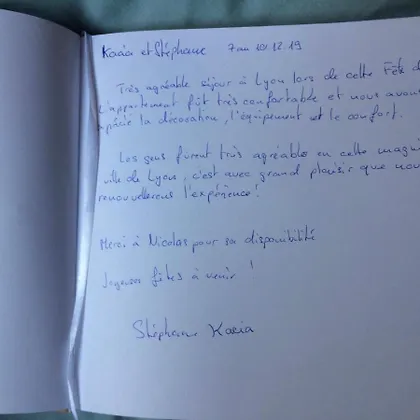 Kacia et Stéphane 7 au 10.12.19
Très agréable séjour à Lyon lors de cette Fête d
L'appartement fût très confortable et nous avons
apécié la décoration, l'équipement et le confort.
Les gens furent très agréable en cette magni
ville de Lyon, c'est avec grand plaisir que nou
renouvellerons l'expérience!
Merci à Nicolas pour sa disponibilité
Joyeuses fêtes à venir !
Stéphane Kacia